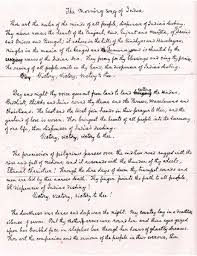 The Morning Song of India
Thou art the ruler of the minds of all people, dispenser of India's destiny.
Thy name rouses the hearts of the Punjab, Sind, Gujarat and Maratha, of Dravida
and Orissa and Bengal; it echoes in the hills of the Vindhyas and Himalayas,
mingles in the music of the and is chanted by the
waves of the Indian Sea. They pray for thy blessings and sing thy praise,
The saving of all people waits in thy hand, thou dispenser of India's destiny.
Victory, Victory, Victory to thee.
Day and night thy voice goes out from land to land calling the Hindus,
Buddhists, Sikhs and Jains round thy throne and the Parsees, Mussalmans and
Christians. The East and the West join hands in their prayer to thee, and the
garland of love is woven. Thou bringest the hearts of all people into the harmony
of one life, thou dispenser of India's destiny,
Victory, Victory, Victory to thee.
The procession of pilgrims passes over the endless road rugged with the
rise and fall of nations; and it resounds with the thunder of thy wheels,
Eternal Charioteer! Through the dire days of doom thy trumpet sounds and
men are led by thee across death. Thy finger points the path to all people,
Oh dispenser of India's destiny!
Victory, Victory, Victory to thee.
The darkness was dense and deep was the night. My country lay in a deathlike
silence of swoon. But thy mother arms were round her and thine eyes gazed
upon her troubled face in sleepless love through her hours of ghastly dreams.
Thou art the companion and the saviour of the people in their sorrows, thou